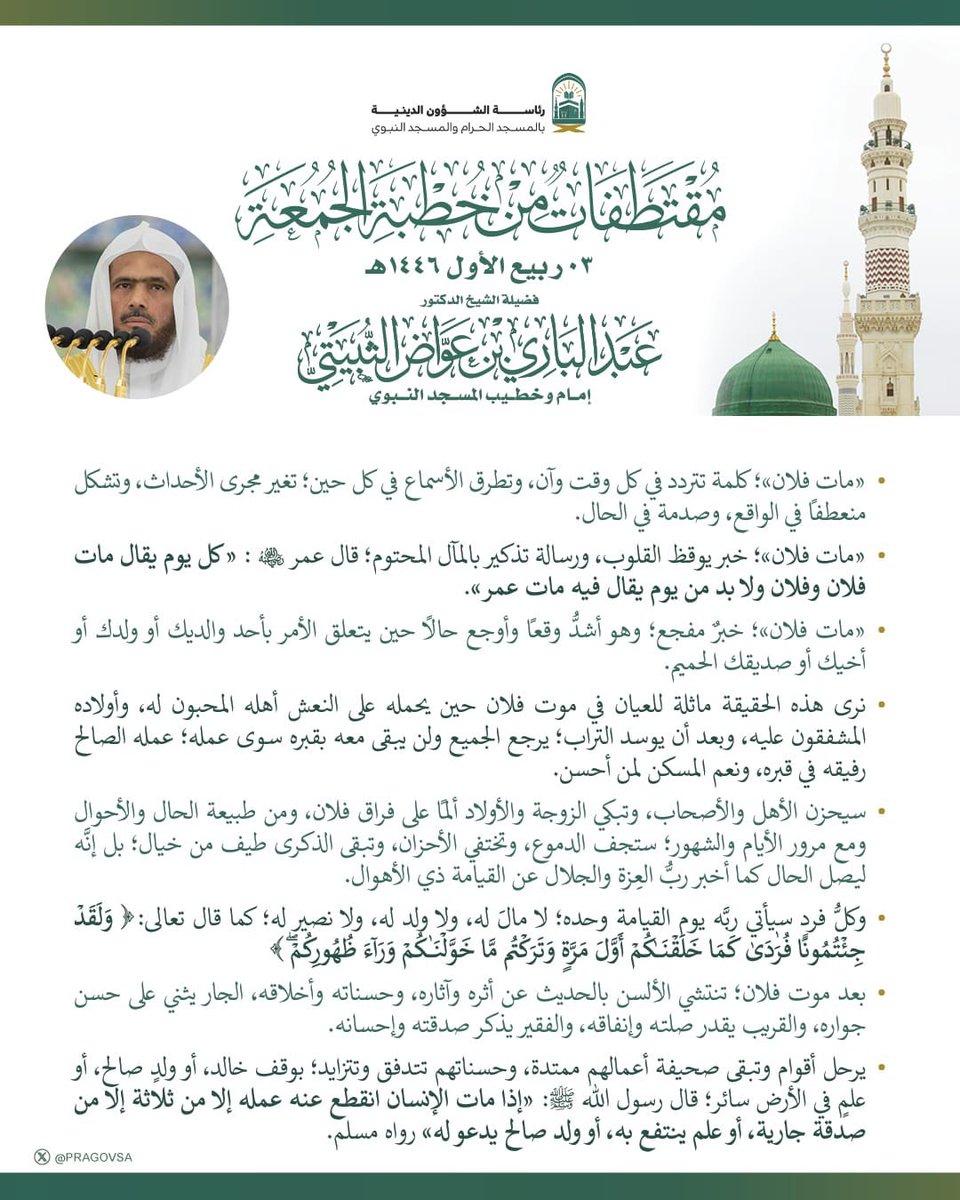 رئاسة الشؤون الدينية
بالمسجد الحرام والمسجد النبوي
مُقْتَطَفَاتٌ مِنْ خُطْبَةِ الْجُمُعَةِ
٠٣ ربيع الأول ١٤٤٦هـ
فضيلة الشيخ الدكتور
عَبْدُ الْبَارِي بْنُ عَوَّاضٍ الثُّبَيْتِيُّ
إمام وخطيب المسجد النبوي
• «مات فلان»؛ كلمة تتردد في كل وقت وآن، وتطرق الأسماع في كل حين؛ تغير مجرى الأحداث، وتشكل
منعطفًا في الواقع، وصدمة في الحال.
• «مات فلان»؛ خبر يوقظ القلوب، ورسالة تذكير بالمآل المحتوم؛ قال عمر ﵁ : «كل يوم يقال مات
فلان وفلان ولا بد من يوم يقال فيه مات عمر».
• «مات فلان»؛ خبرٌ مفجع؛ وهو أشدُّ وقعًا وأوجع حالًا حين يتعلق الأمر بأحد والديك أو ولدك أو
أخيك أو صديقك الحميم.
• نرى هذه الحقيقة ماثلة للعيان في موت فلان حين يحمله على النعش أهله المحبون له، وأولاده
المشفقون عليه، وبعد أن يوسد التراب؛ يرجع الجميع ولن يبقى معه بقبره سوى عمله؛ عمله الصالح
رفيقه في قبره، ونعم المسكن لمن أحسن.
• سيحزن الأهل والأصحاب، وتبكي الزوجة والأولاد ألمًا على فراق فلان، ومن طبيعة الحال والأحوال
ومع مرور الأيام والشهور؛ ستجف الدموع، وتختفي الأحزان، وتبقى الذكرى طيف من خيال؛ بل إنَّه
ليصل الحال كما أخبر ربُّ العِزة والجلال عن القيامة ذي الأهوال.
• وكلُّ فردٍ سيأتي ربَّه يوم القيامة وحده؛ لا مالَ له، ولا ولد له، ولا نصير له؛ كما قال تعالى:﴿ وَلَقَدْ
جِئْتُمُونَا فُرَادَىٰ كَمَا خَلَقْنَاكُمْ أَوَّلَ مَرَّةٍ وَتَرَكْتُم مَّا خَوَّلْنَاكُمْ وَرَآءَ ظُهُورِكُمْ ۖ﴾
• بعد موت فلان؛ تنتشي الألسن بالحديث عن أثره وآثاره، وحسناته وأخلاقه، الجار يثني على حسن
جواره، والقريب يقدر صلته وإنفاقه، والفقير يذكر صدقته وإحسانه.
• يرحل أقوام وتبقى صحيفة أعمالهم ممتدة، وحسناتهم تتدفق وتتزايد؛ بوقف خالد، أو ولدٍ صالح، أو
علمٍ في الأرض سائر؛ قال رسول الله ﷺ: «إذا مات الإنسان انقطع عنه عمله إلا من ثلاثة إلا من
صدقة جارية، أو علم ينتفع به، أو ولد صالح يدعو له» رواه مسلم.
@PRAGOVSA